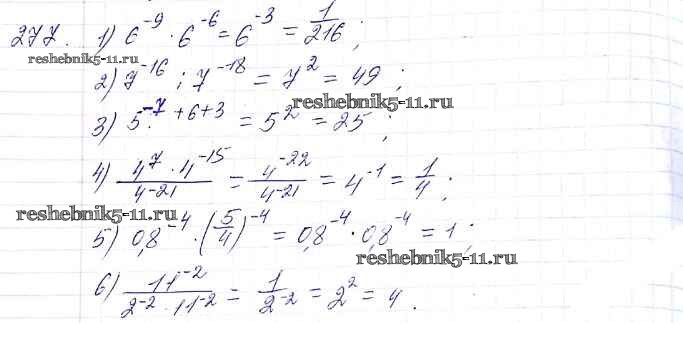 277. 1) 6^-9 · 6^-6 = 6^-3 = 1/216 ;
reshebnik5-11.ru
2) 7^-16 : 7^-18 = 7^2 = 49 ;
reshebnik5-11.ru
3) 5^-7 + 6 + 3 = 5^2 = 25 ;
4) 4^7 · 4^-15 / 4^-21 = 4^-22 / 4^-21 = 4^-1 = 1/4 ;
reshebnik5-11.ru
5) 0,8^-4 · (5/4)^-4 = 0,8^-4 · 0,8^-4 = 1 ;
reshebnik5-11.ru
6) 11^-2 / 2^-2 · 11^-2 = 1 / 2^-2 = 2^2 = 4 .